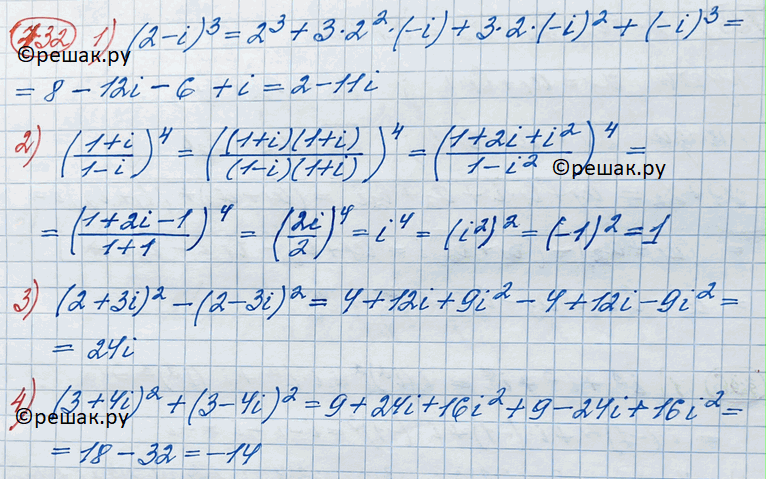 732 1) (2-i)³ = 2³ + 3·2²·(-i) + 3·2·(-i)² + (-i)³ =
©решак.ру
= 8 - 12i - 6 + i = 2 - 11i
2) ((1+i)/(1-i))⁴ = (((1+i)(1+i))/((1-i)(1+i)))⁴ = ((1+2i+i²)/(1-i²))⁴ =
©решак.ру
= ((1+2i-1)/(1+1))⁴ = (2i/2)⁴ = i⁴ = (i²)² = (-1)² = 1
3) (2+3i)² - (2-3i)² = 4 + 12i + 9i² - 4 + 12i - 9i² =
= 24i
4) (3+4i)² + (3-4i)² = 9 + 24i + 16i² + 9 - 24i + 16i² =
©решак.ру
= 18 - 32 = -14